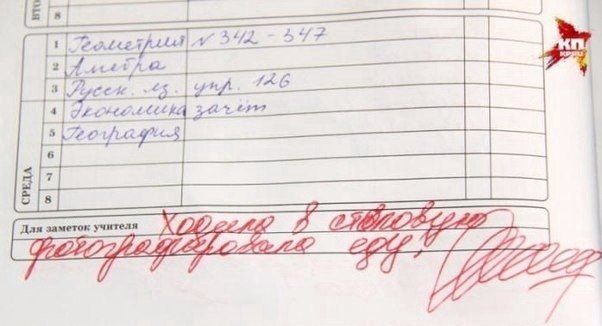 ВТО
8
1 Геометрия N 342 - 347
2 Алгебра
3 Русск. яз. упр. 126
4 Экономика зачёт
5 География
6
7
8
СРЕДА
Для заметок учителя Ходила в столовую
фотографировала еду,
КП
KP.RU